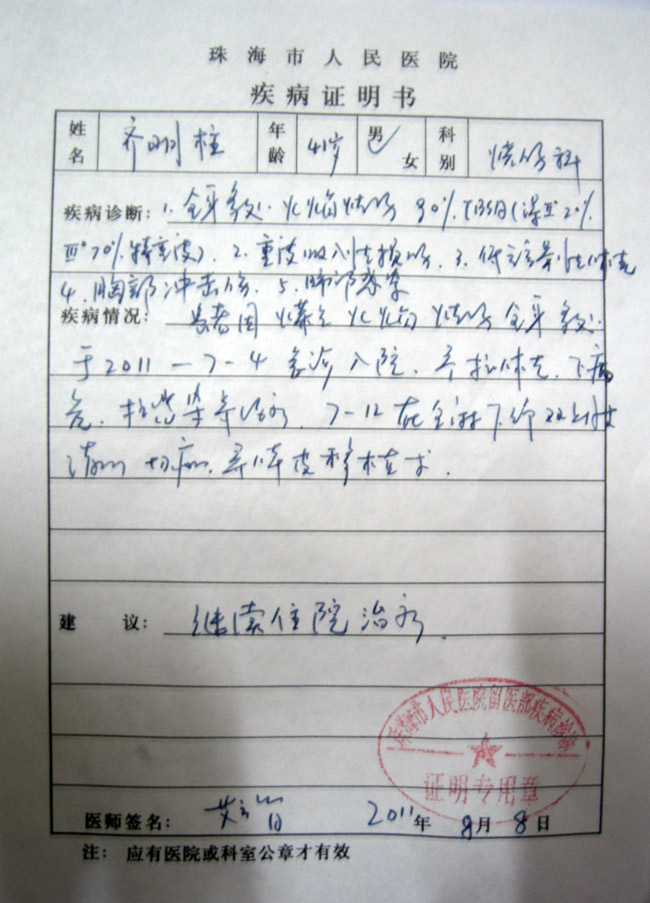 珠海市人民医院
疾病证明书
姓名 齐刚柱 年龄 41岁 男 女 科别 烧伤科
疾病诊断：1. 全身多处火焰烧伤 90% TBSA（深Ⅱ° 20%.
Ⅲ° 70% 特重度）. 2. 重度吸入性损伤. 3. 低血容量性休克
4. 胸部冲击伤. 5. 肺部感染
疾病情况： 患者因 爆炸 火焰 烧伤 全身多处.
于2011-7-4 急诊入院. 予抗休克. 下病
危. 抗感染等治疗. 7-12 在全麻下行双上肢
清创 切痂. 异体皮移植术.
建 议： 继续住院治疗.
珠海市人民医院留医部疾病诊断
证明专用章
医师签名： 2011年 8月 8日
注： 应有医院或科室公章才有效